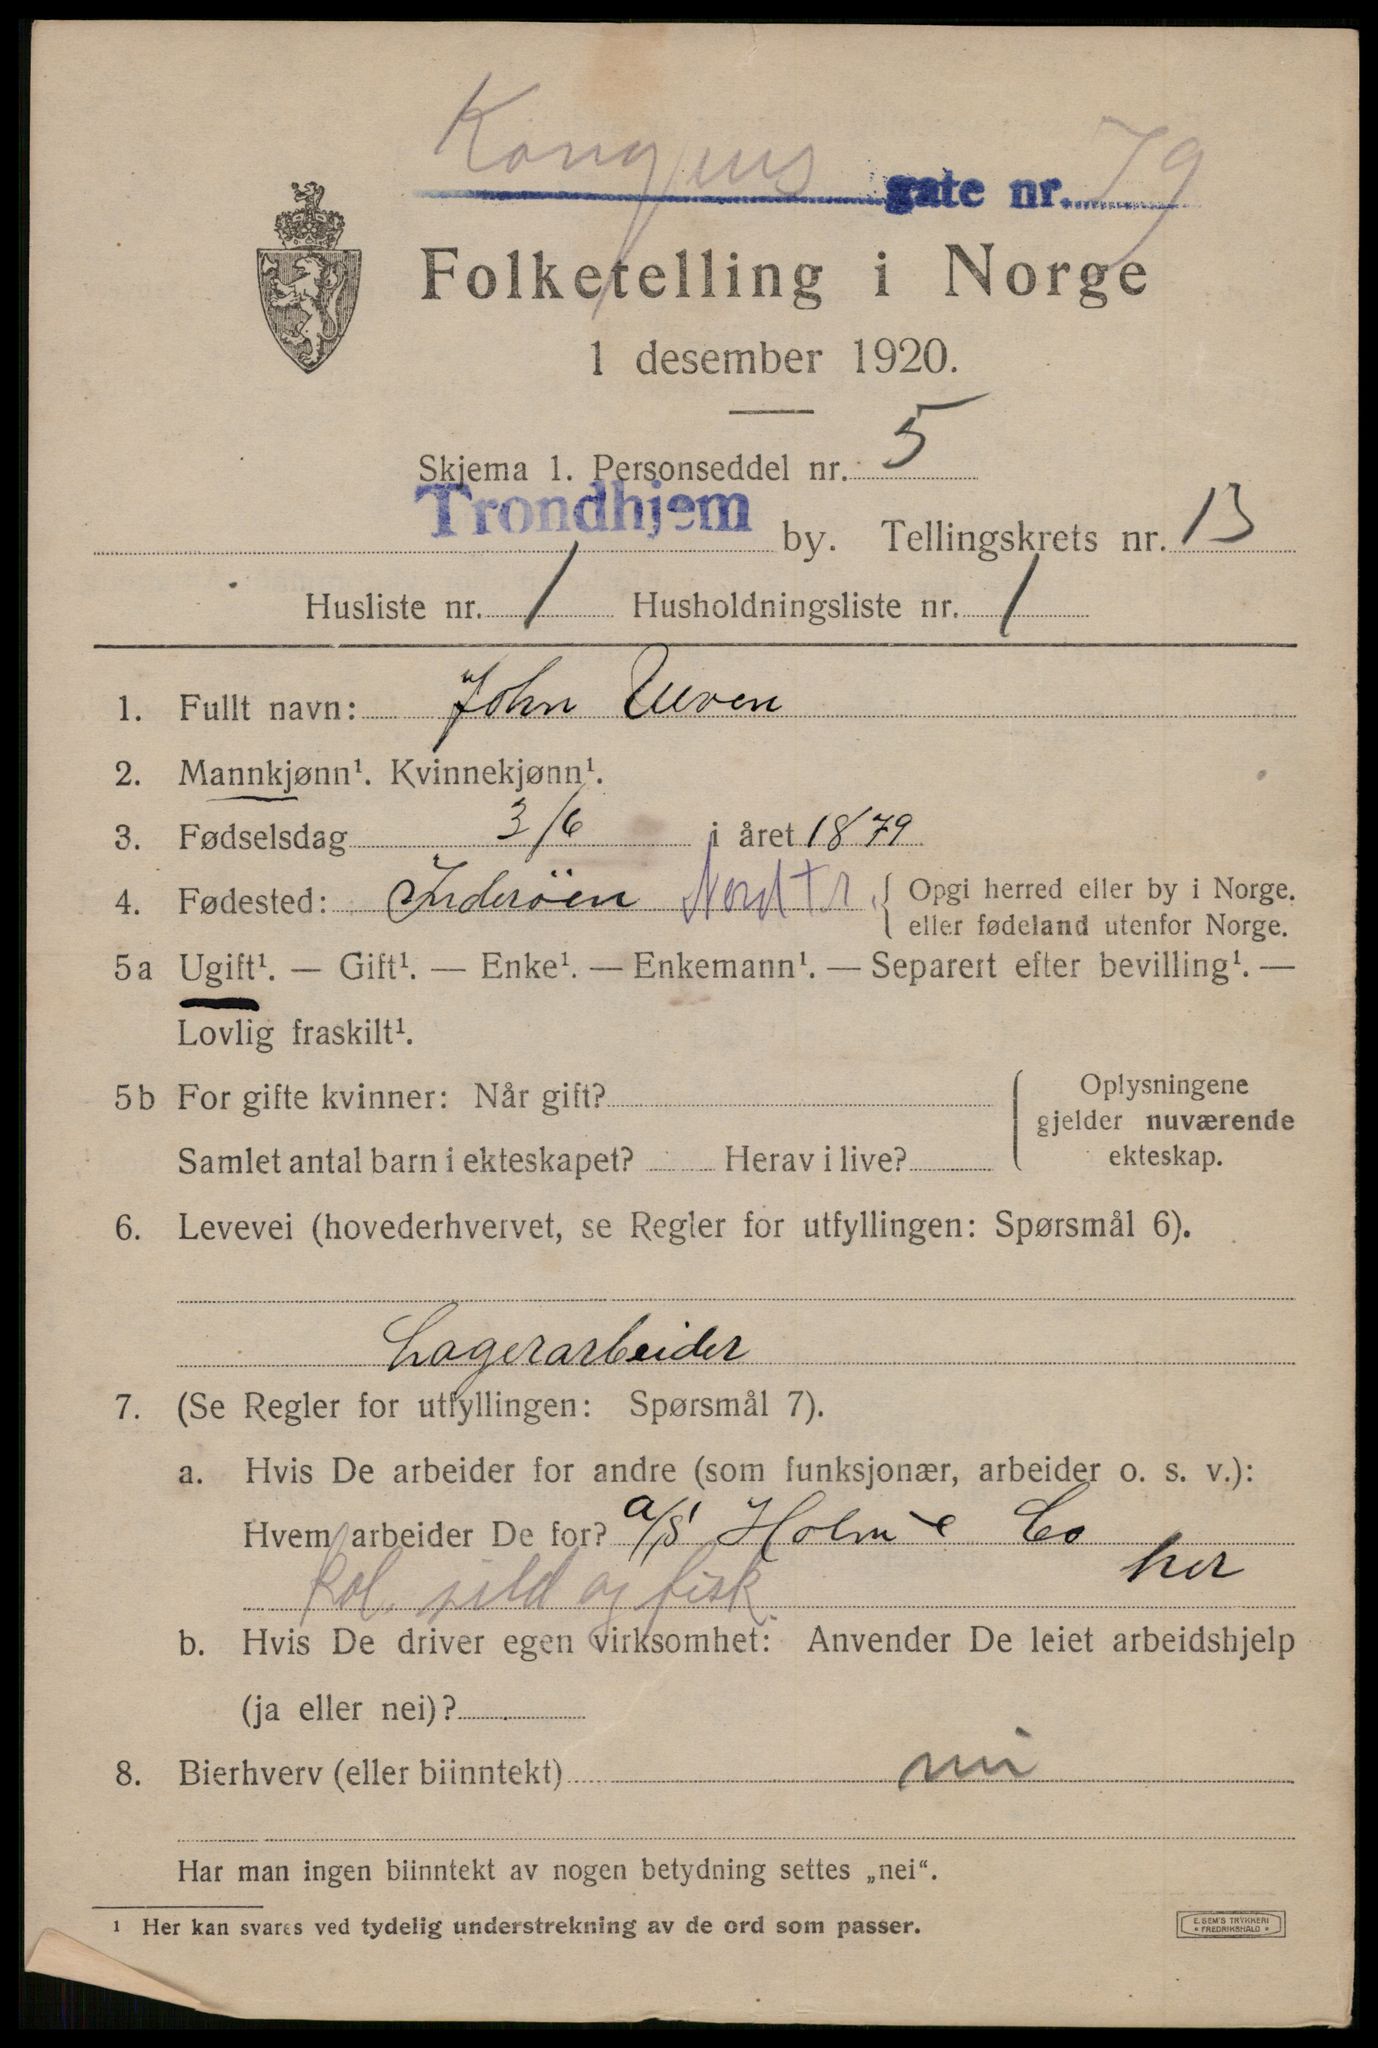 Kongens gate nr. 79
Folketelling i Norge
1 desember 1920.
Skjema 1. Personseddel nr. 5
Trondhjem by. Tellingskrets nr. 13
Husliste nr. 1 Husholdningsliste nr. 1
1. Fullt navn: John Ulven
2. Mannkjønn¹. Kvinnekjønn¹.
3. Fødselsdag 3/6 i året 1879
4. Fødested: Inderöen Nordtr. { Opgi herred eller by i Norge.
eller fødeland utenfor Norge.
5a Ugift¹. — Gift¹. — Enke¹. — Enkemann¹. — Separert efter bevilling¹. —
Lovlig fraskilt¹.
5b For gifte kvinner: Når gift?
Samlet antal barn i ekteskapet? Herav i live?
Oplysningene
gjelder nuværende
ekteskap.
6. Levevei (hovederhvervet, se Regler for utfyllingen: Spørsmål 6).
Lagerarbeider
7. (Se Regler for utfyllingen: Spørsmål 7).
a. Hvis De arbeider for andre (som funksjonær, arbeider o. s. v.):
Hvem arbeider De for? a/s Holm & Co
her
kol. sild og fisk.
b. Hvis De driver egen virksomhet: Anvender De leiet arbeidshjelp
(ja eller nei)?
8. Bierhverv (eller biinntekt) nei
Har man ingen biinntekt av nogen betydning settes „nei“.
¹ Her kan svares ved tydelig understrekning av de ord som passer.
E. SEM'S TRYKKERI
• FREDRIKSHALD •